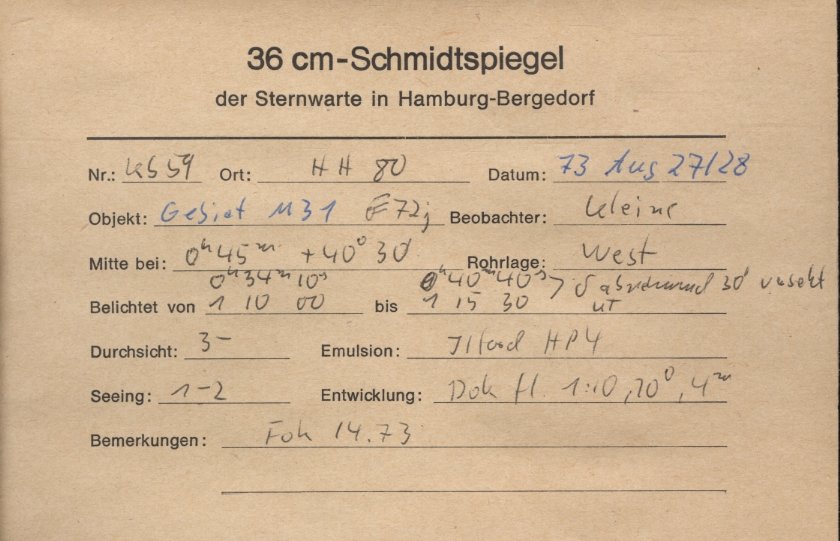 36 cm-Schmidtspiegel
der Sternwarte in Hamburg-Bergedorf
Nr.: KS 59 Ort: HH 80 Datum: 73 Aug 27/28
Objekt: Gebiet M31 Beobachter: Kleine
Mitte bei: 0h 45m +40° 30' Rohrlage: West
0h 34m 10s 0h 40m 40s > δ 30"
Belichtet von 1 10 00 bis 1 15 30 UT
Durchsicht: 3- Emulsion: Ilford HP4
Seeing: 1-2 Entwicklung: Dok fl. 1:10, 20°, 4m
Bemerkungen: Fok 14.73